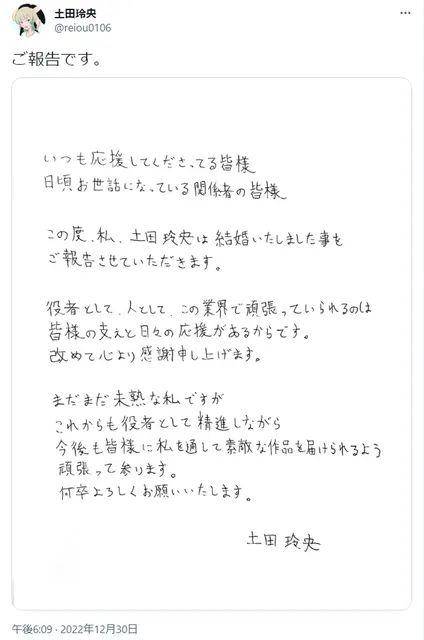 土田玲央
@reiou0106
ご報告です。
いつも応援してくださってる皆様
日頃お世話になっている関係者の皆様
この度、私、土田玲央は結婚いたしました事を
ご報告させていただきます。
役者として、人として、この業界で頑張っていられるのは
皆様の支えと日々の応援があるからです。
改めて心より感謝申し上げます。
まだまだ未熟な私ですが
これからも役者として精進しながら
今後も皆様に私を通して素敵な作品を届けられるよう
頑張って参ります。
何卒よろしくお願いいたします。
土田 玲央
午後6:09 · 2022年12月30日